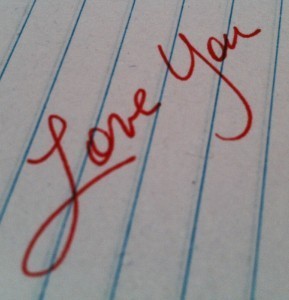 Love You